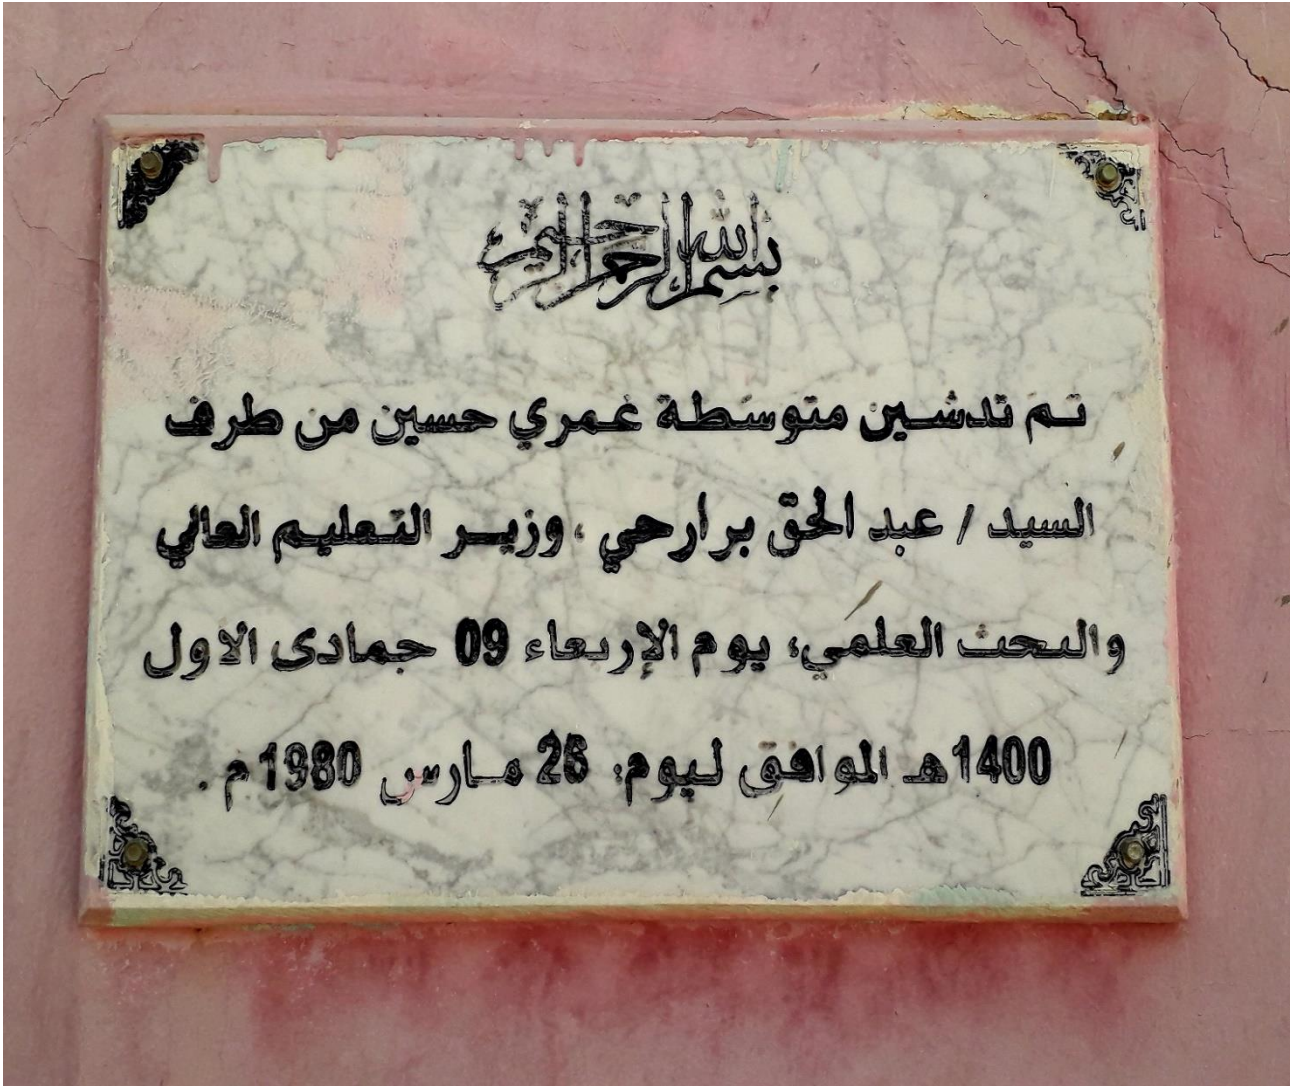 بسم الله الرحمن الرحيم
تم تدشين متوسطة عمري حسين من طرف
السيد / عبد الحق برارحي ، وزير التعليم العالي
والبحث العلمي، يوم الإربعاء 09 جمادى الاول
1400هـ الموافق ليوم: 26 مارس 1980م .